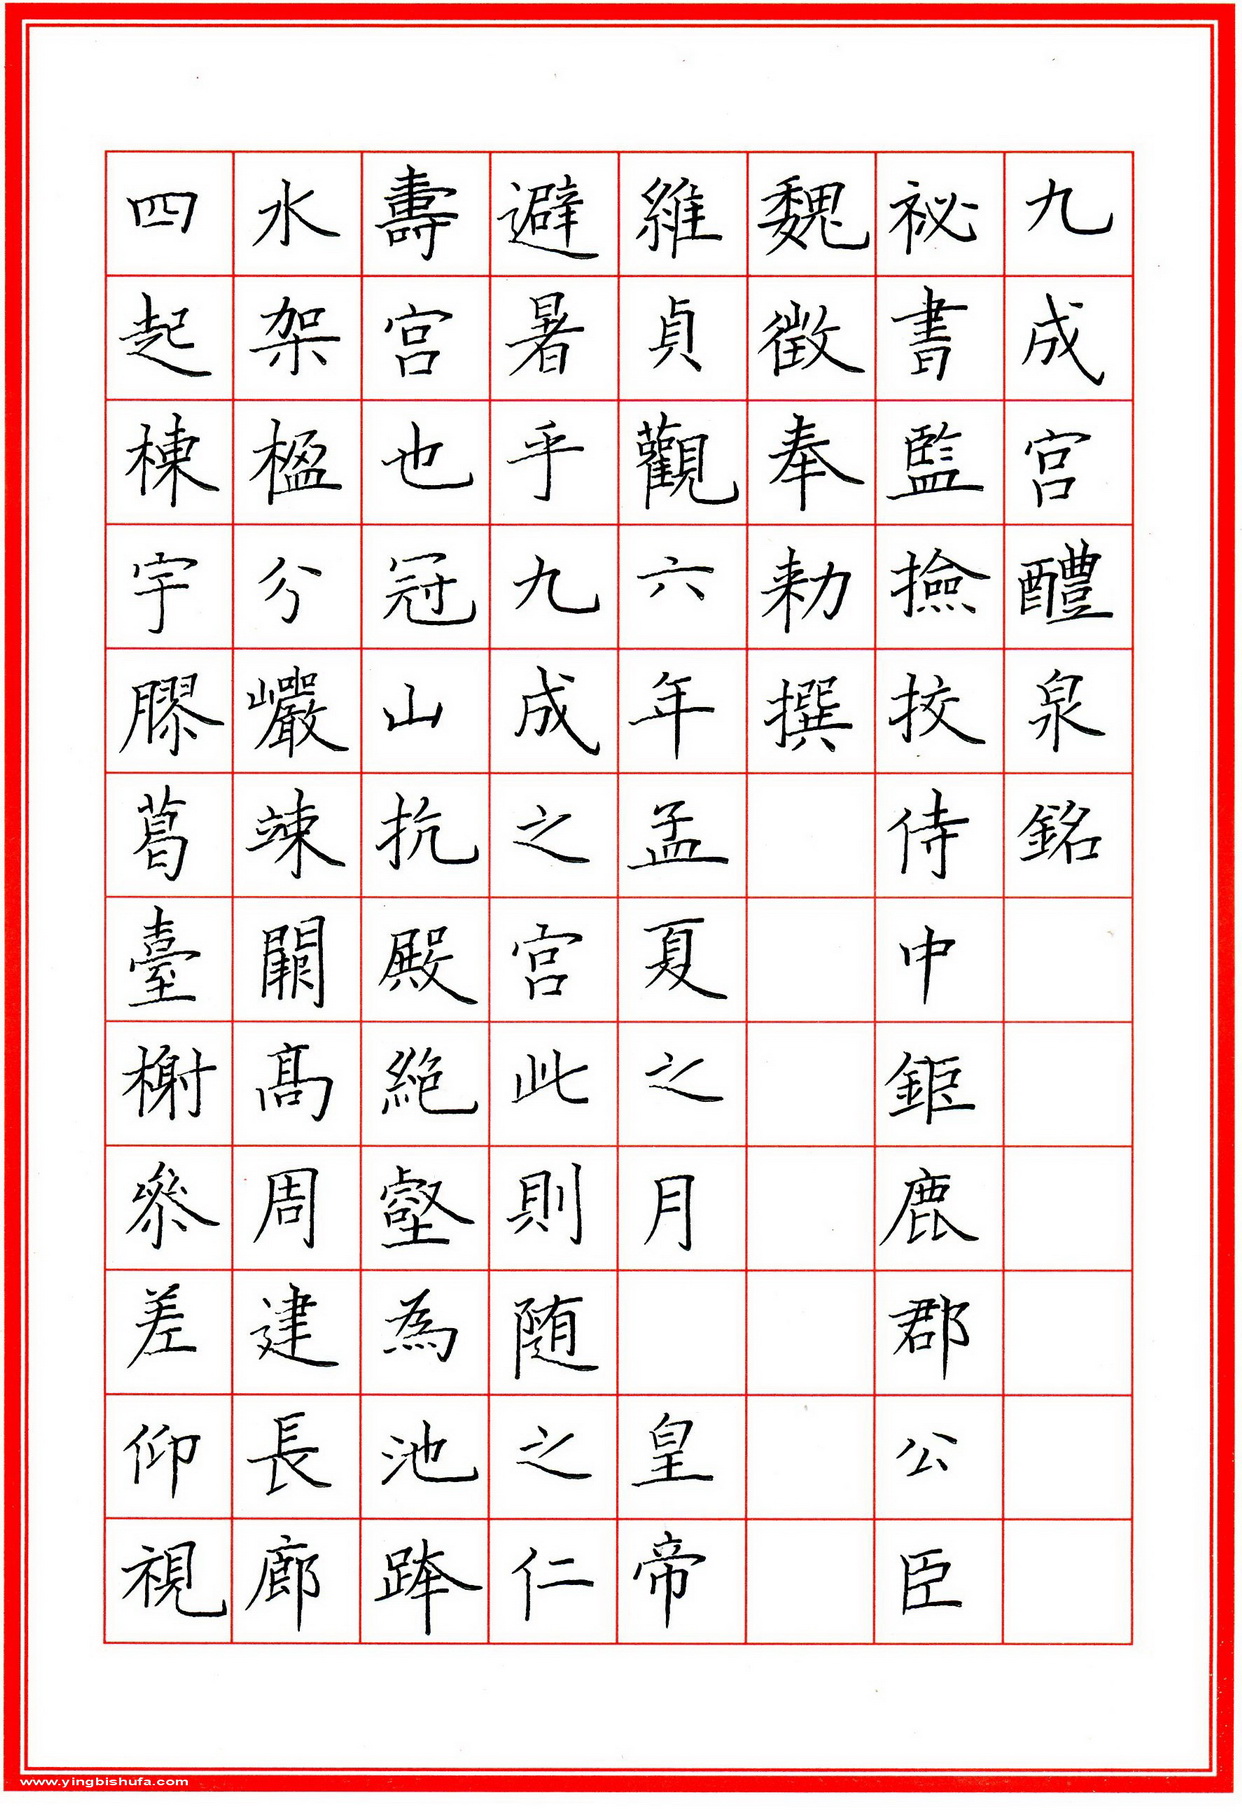 九成宮醴泉銘
祕書監撿挍侍中鉅鹿郡公臣
魏徵奉勑撰
維貞觀六年孟夏之月皇帝
避暑乎九成之宮此則随之仁
壽宮也冠山抗殿絶壑為池跨
水架楹分巖竦闕髙周建長廊
四起棟宇膠葛臺榭參差仰視
www.yingbishufa.com